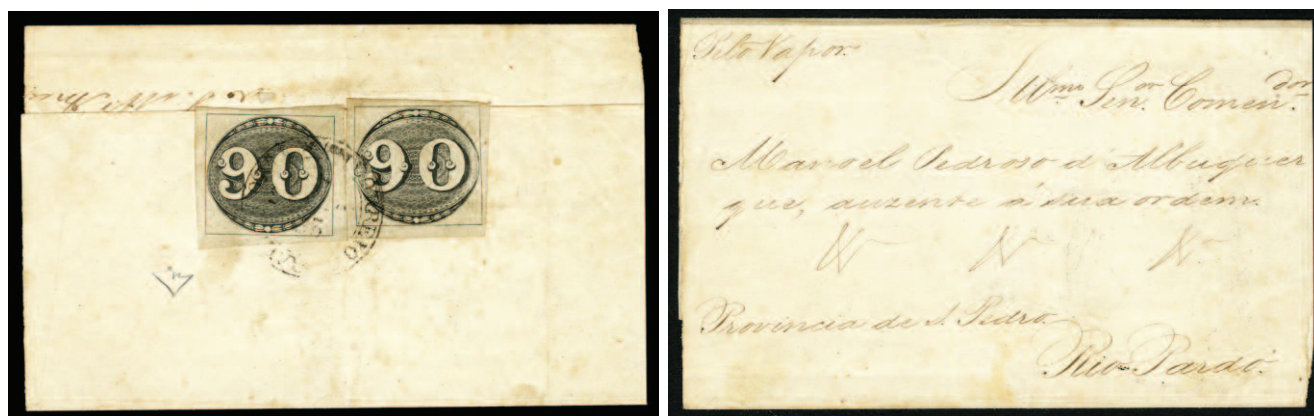 90 90
CORREIO
Pelo Vapor.
Illmo. Senor. Comendor.
Manoel Pedroso d'Albuquer
que, auzente á sua ordem.
Provincia de S. Pedro.
Rio Pardo.